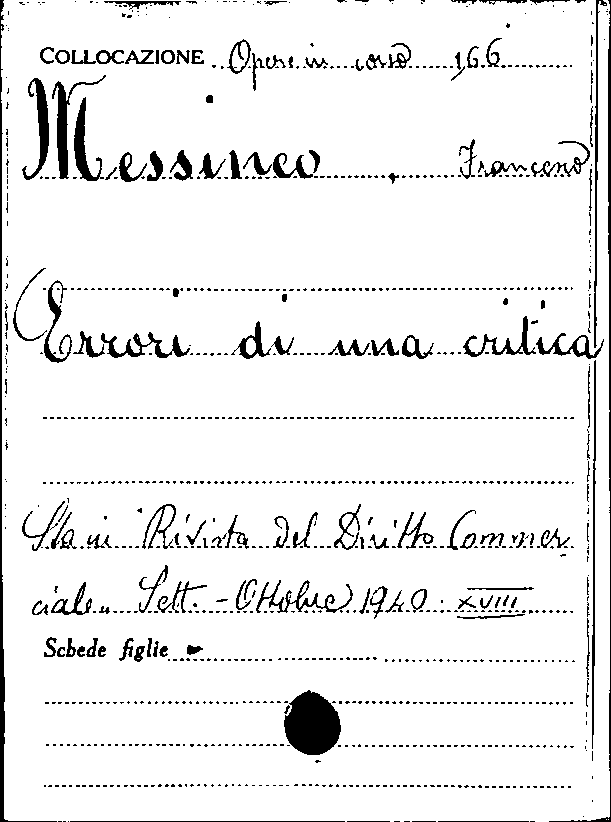 COLLOCAZIONE Opere in corso 166
Messineo, Francesco
Errori di una critica
Sta in "Rivista del Diritto Commer
ciale" Sett. - Ottobre 1940. XVIII
Schede figlie